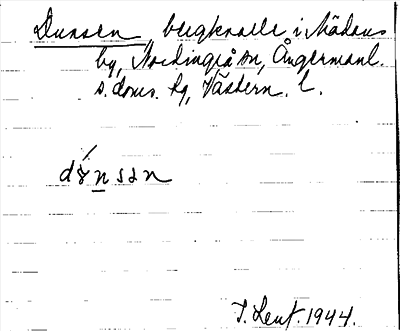 Dunsen, bergknalle i Mädans
by, Nordingrå sn, Ångermanl.
s. doms. hg, Västern. l.
dɤ́nsən
T. Lenf. 1944.